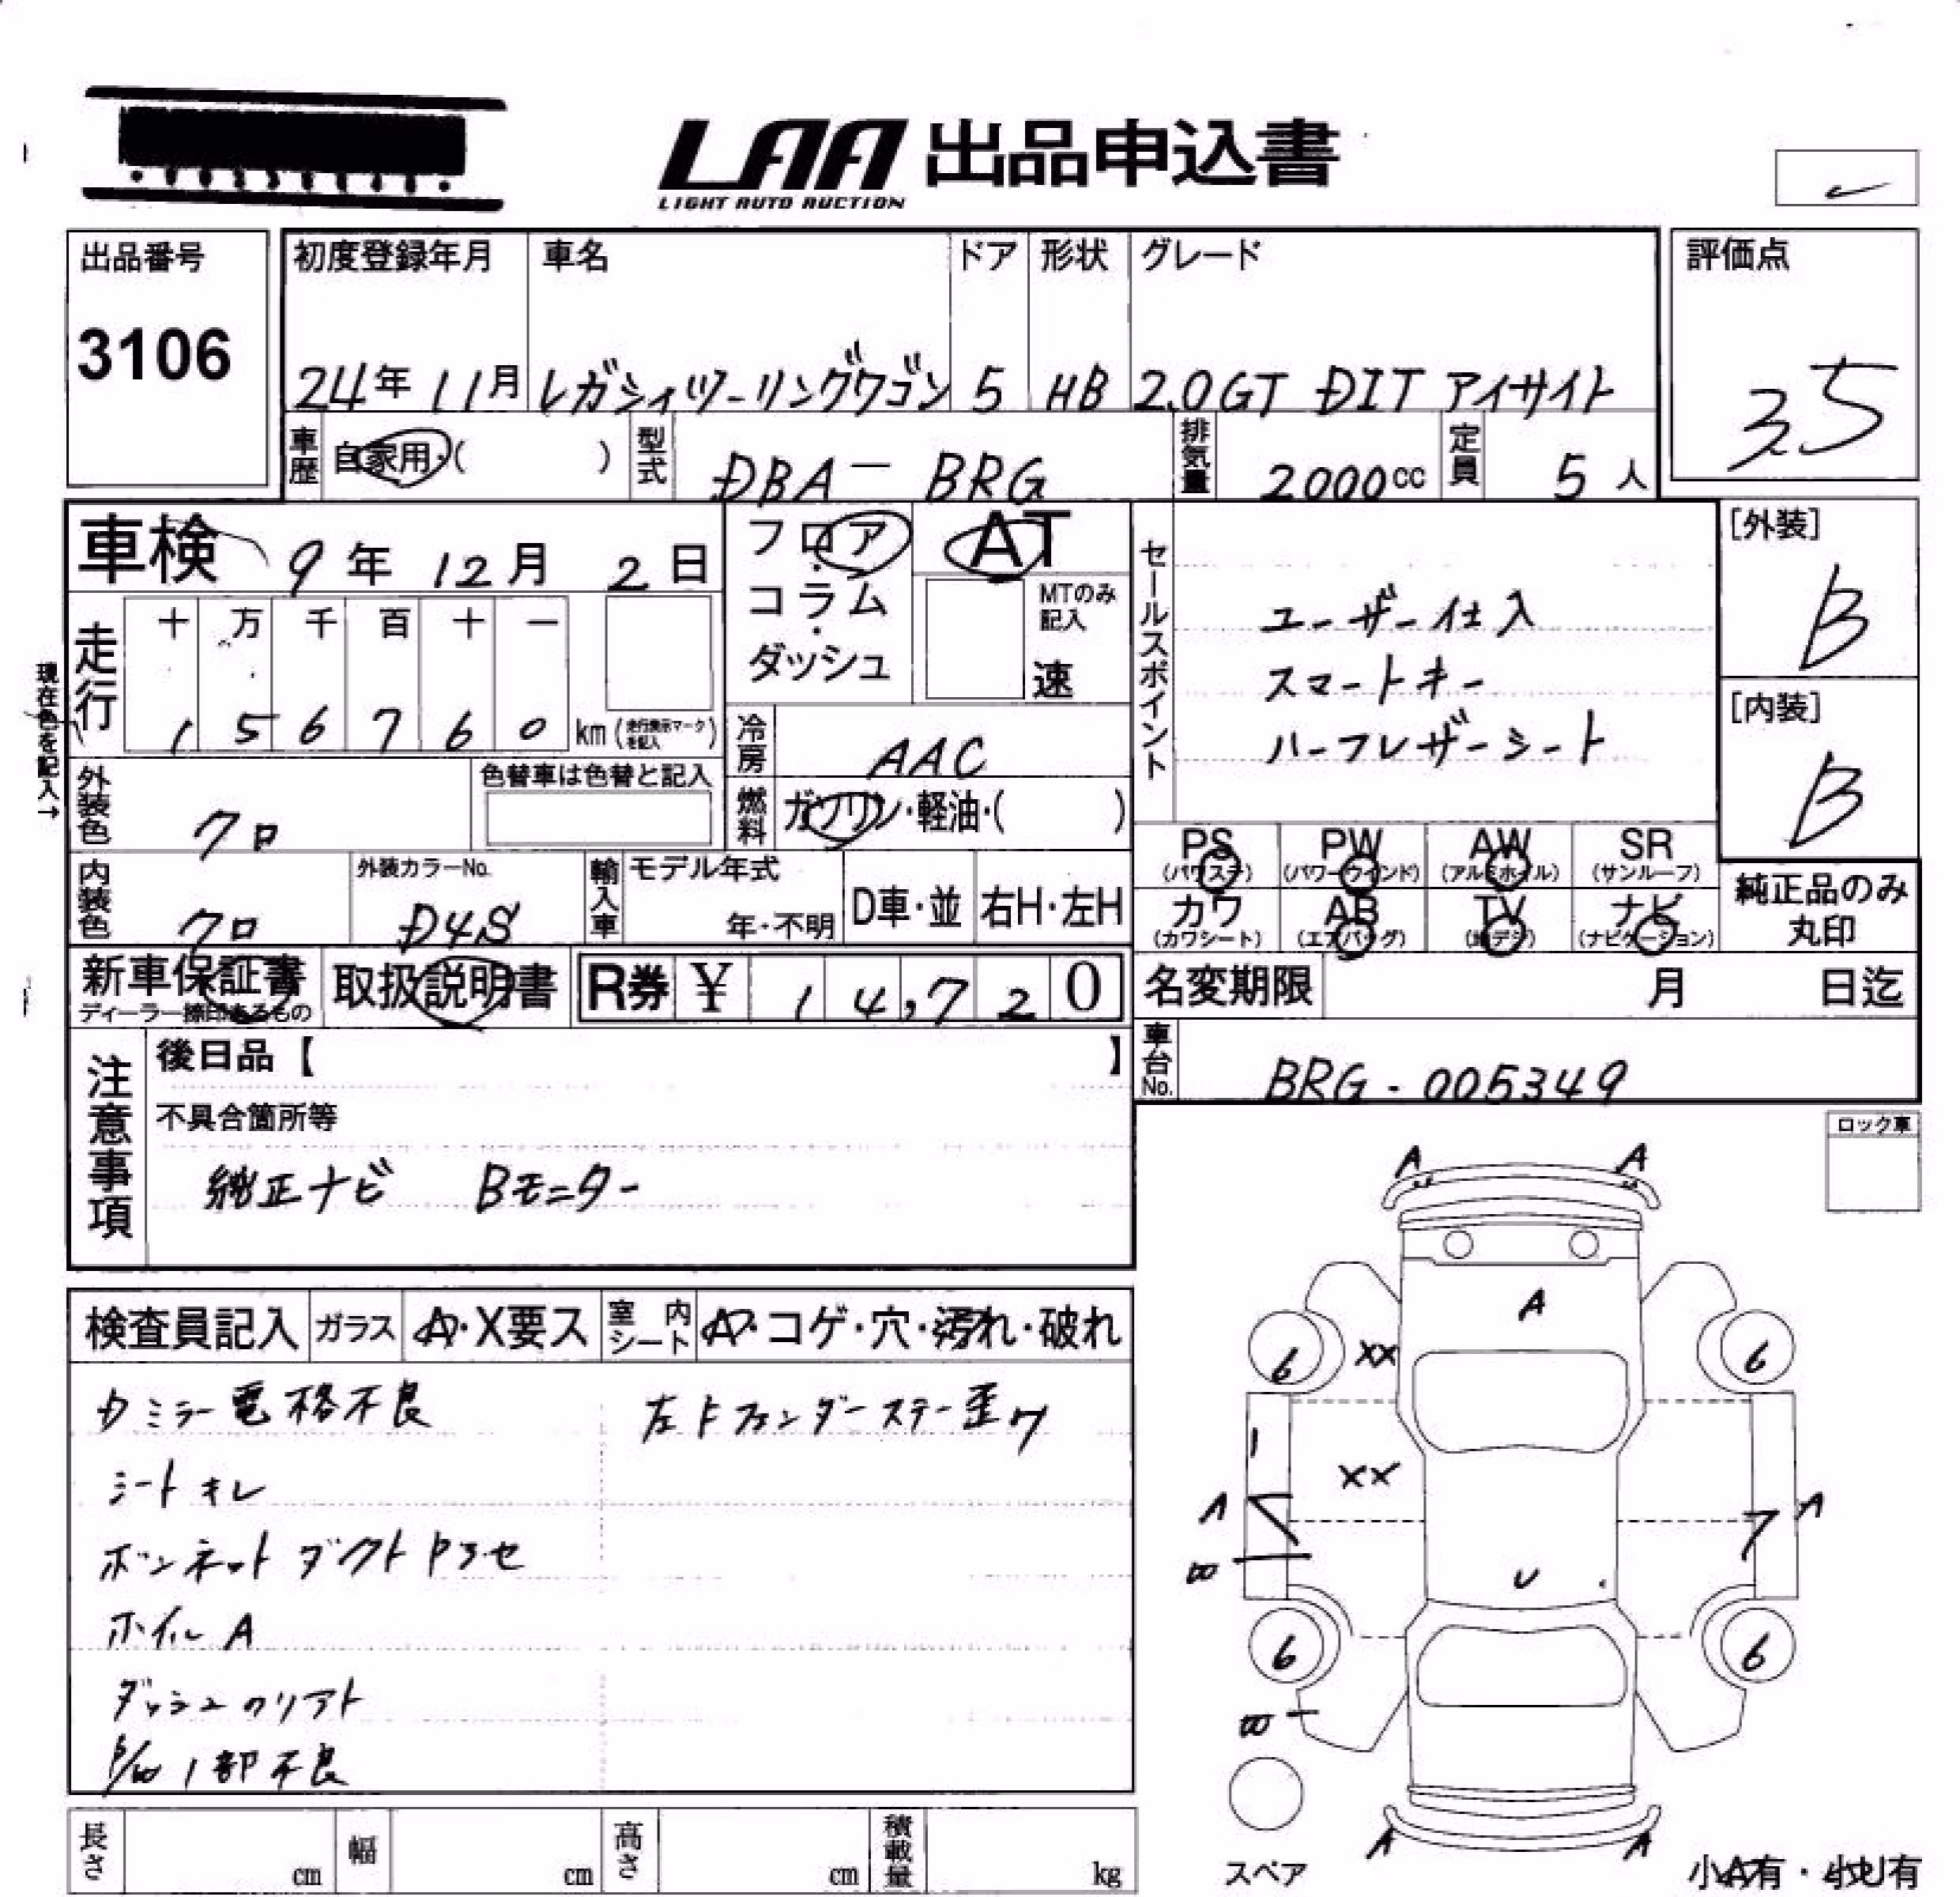 LAA 出品申込書
LIGHT AUTO AUCTION
出品番号
3106
初度登録年月
24年 11月
車名
レガシィツーリングワゴン
ドア
5
形状
HB
グレード
2.0GT DIT アイサイト
評価点
3.5
車歴
自家用・( )
型式
DBA-BRG
排気量
2000cc
定員
5人
車検 9年 12月 2日
フロア・コラム・ダッシュ
AT
MTのみ記入
速
セールスポイント
ユーザー仕入
スマートキー
ハーフレザーシート
[外装]
B
[内装]
B
現在色を記入→
走行
十 万 千 百 十 一
1 5 6 7 6 0 km (走行表示マークを記入)
冷房
AAC
燃料
ガソリン・軽油・( )
外装色
クロ
色替車は色替と記入
内装色
クロ
外装カラーNo.
D4S
輸入車
モデル年式
年・不明
D車・並
右H・左H
PS (パワステ)
PW (パワーウインド)
AW (アルミホイル)
SR (サンルーフ)
カワ (カワシート)
AB (エアバッグ)
TV (地デジ)
ナビ (ナビゲーション)
純正品のみ丸印
新車保証書
ディーラー捺印あるもの
取扱説明書
R券 ¥ 14,720
名変期限 月 日迄
車台No.
BRG-005349
注意事項
後日品【 】
不具合箇所等
純正ナビ Bモニター
ロック車
検査員記入
ガラス
A・X要ス
室内シート
A・コゲ・穴・汚れ・破れ
ミラー電格不良
左Fフェンダーステー歪ワ
シートキレ
ボンネットダクト
ホイルA
ダッシュ
1部不良
A A
A
XX
XX
6 6
A A
U
6 6
A A
スペア
小A有・小U有
長さ cm
幅 cm
高さ cm
積載量 kg